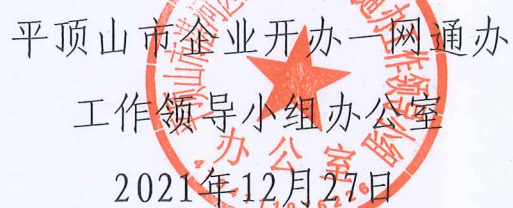 平顶山市企业开办一网通办
工作领导小组办公室
2021年12月27日
办公室